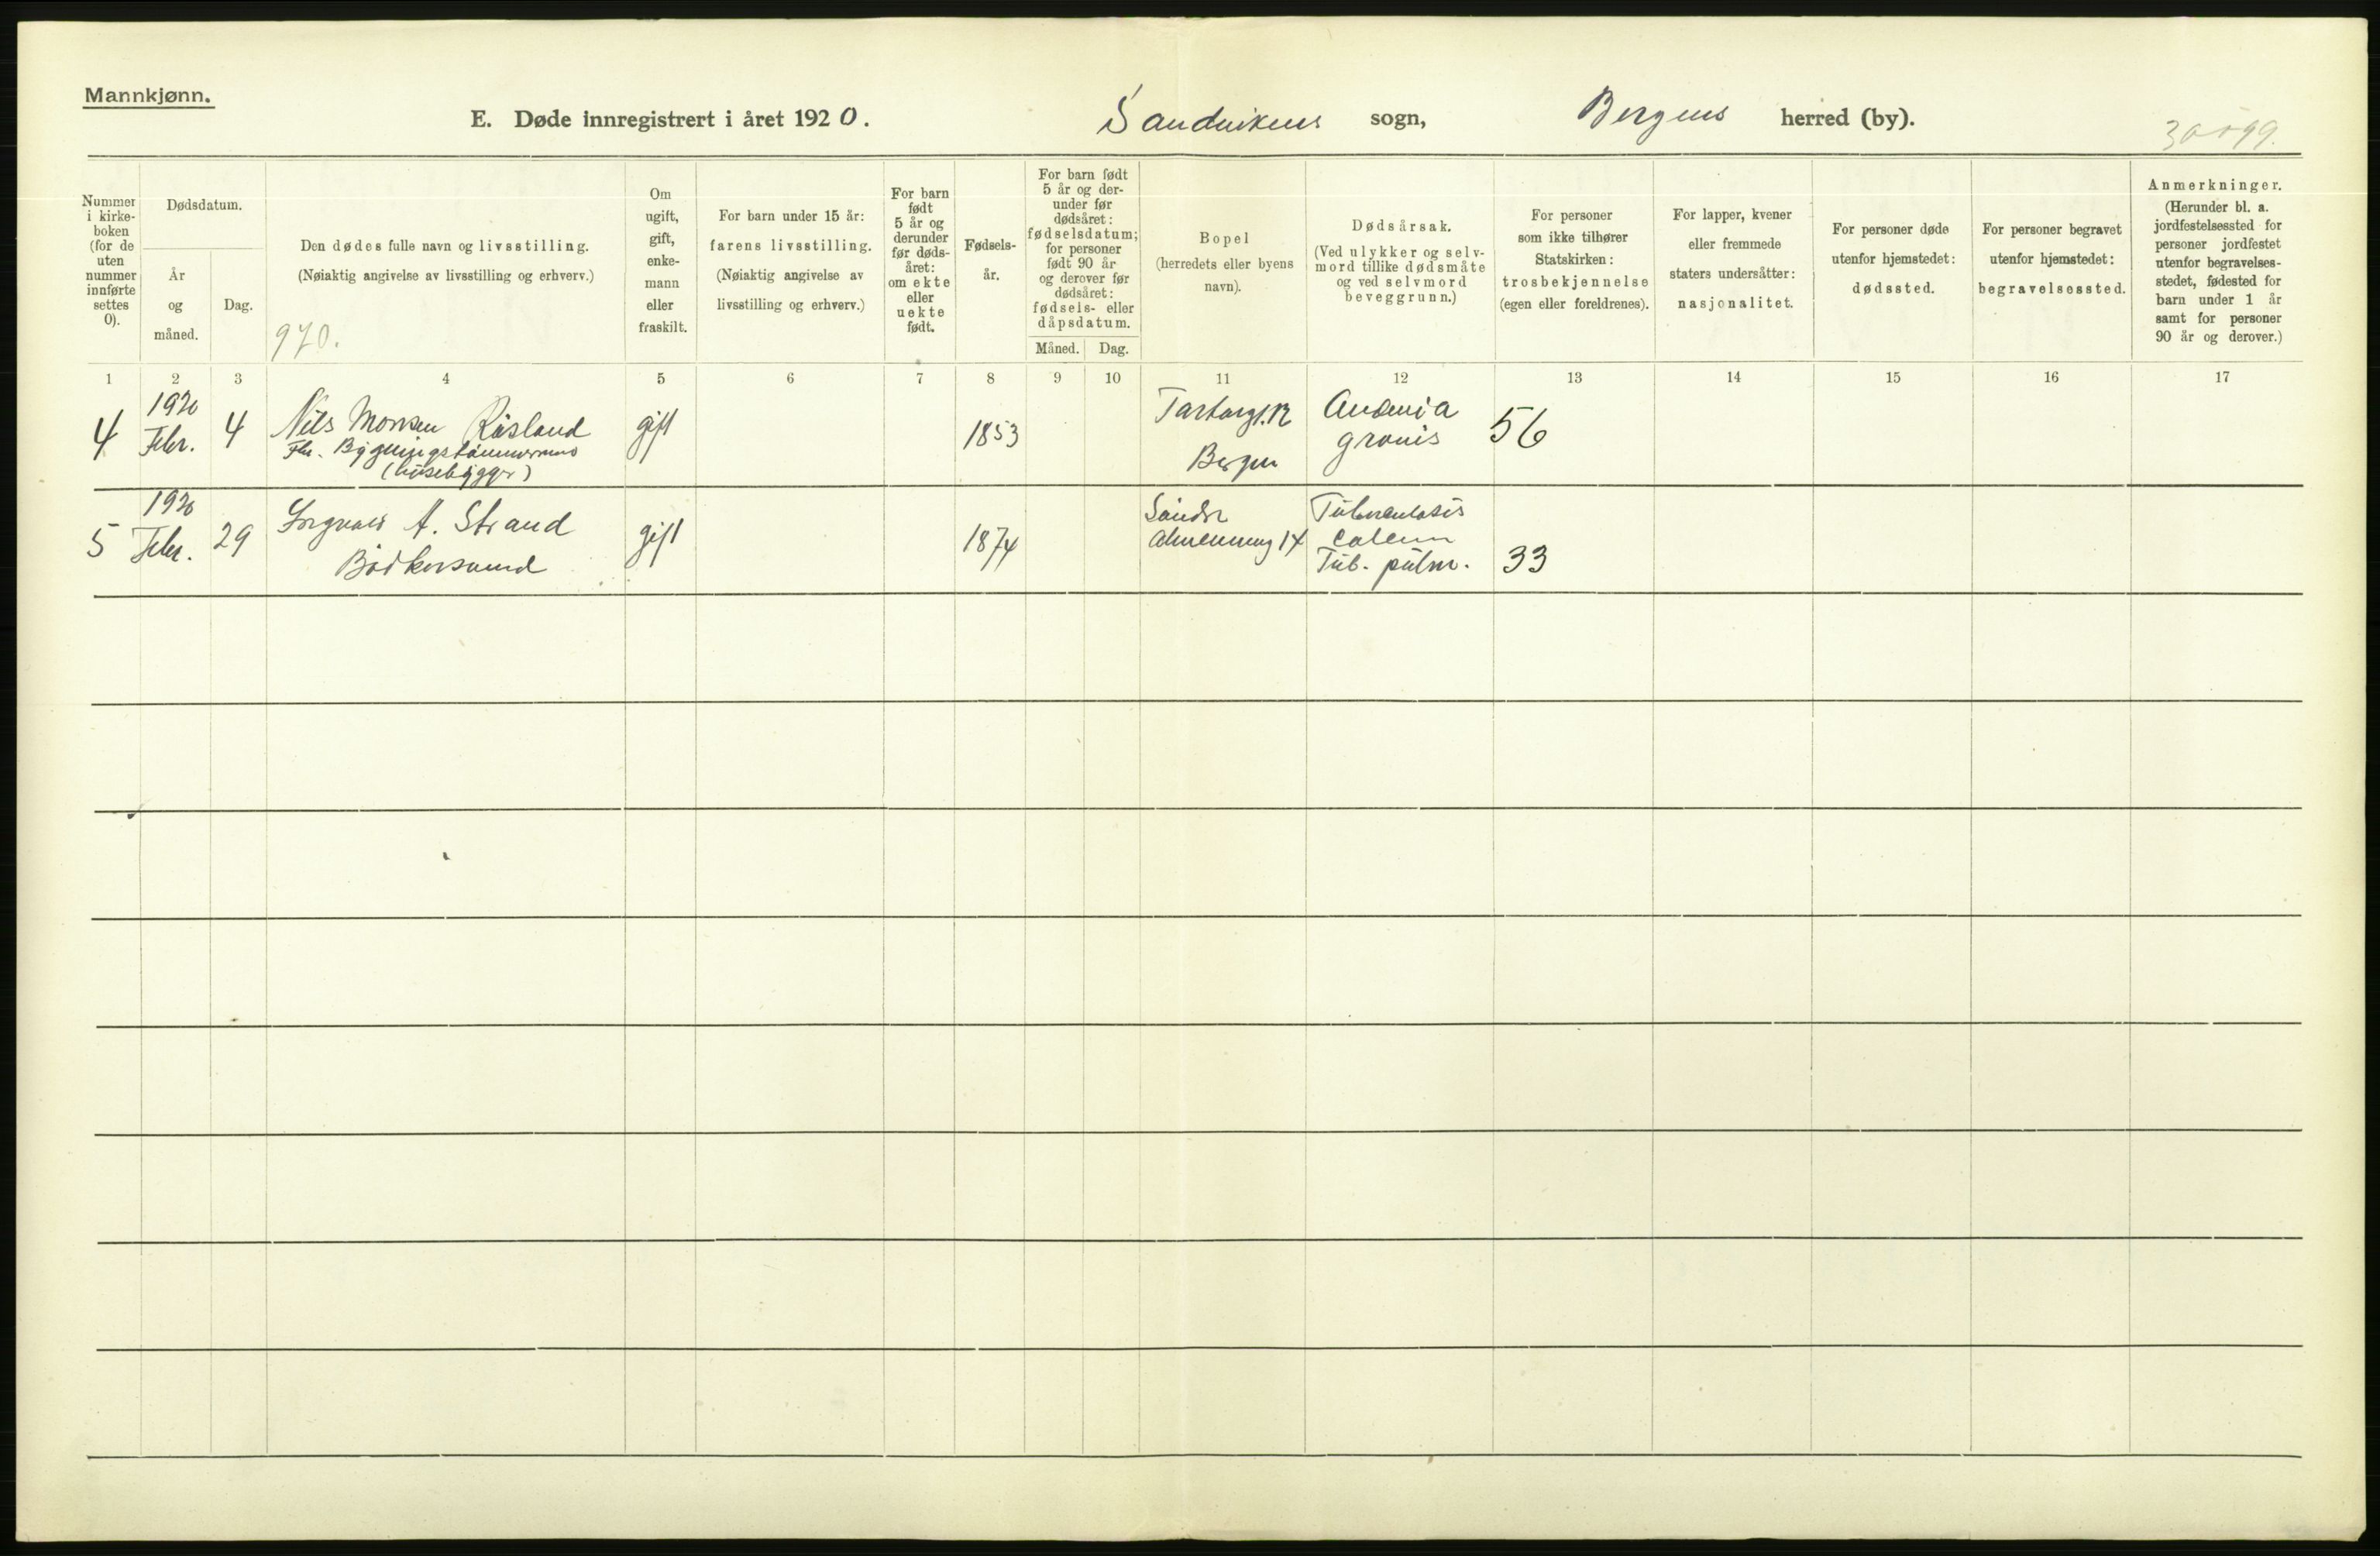 Mannkjønn.
E. Døde innregistrert i året 1920. Sandvikens sogn, Bergens herred (by).
Nummer i kirke- boken (for de uten nummer innførte settes 0).
Dødsdatum.
År og måned.
Dag.
Den dødes fulle navn og livsstilling.
(Nøiaktig angivelse av livsstilling og erhverv.)
970.
Om ugift, gift, enke- mann eller fraskilt.
For barn under 15 år:
farens livsstilling.
(Nøiaktig angivelse av
livsstilling og erhverv.)
For barn født 5 år og derunder før døds- året: om ekte eller uekte født.
Fødsels- år.
For barn født 5 år og der- under før dødsåret: fødselsdatum; for personer født 90 år og derover før dødsåret: fødsels- eller dåpsdatum.
Måned. Dag.
Bopel
(herredets eller byens
navn).
Dødsårsak.
(Ved ulykker og selv-
mord tillike dødsmåte
og ved selvmord
beveggrunn.)
For personer
som ikke tilhører
Statskirken:
trosbekjennelse
(egen eller foreldrenes).
For lapper, kvener
eller fremmede
staters undersåtter:
nasjonalitet.
For personer døde
utenfor hjemstedet:
dødssted.
For personer begravet
utenfor hjemstedet:
begravelsessted.
Anmerkninger.
(Herunder bl. a.
jordfestelsessted for
personer jordfestet
utenfor begravelses-
stedet, fødested for
barn under 1 år
samt for personer
90 år og derover.)
1 2 3 4 5 6 7 8 9 10 11 12 13 14 15 16 17
4
1920
Febr.
4
Nils Monsen Risland
Fhv. Bygningstømmermand
(husebygger)
gift
1853
Bergen
Anæmia
gravis
56
5
1920
Febr.
29
A. Strand
Bødkersvend
gift
1874
Søndre
almenning 14
Tuberculosis
Tub. pulm.
33